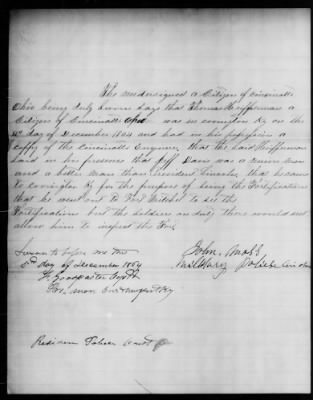 The undersigned a Citizen of Cincinnati
Ohio being duly sworn says that Thomas Huffernan a
Citizen of Cincinnati Ohio was in Covington Ky on the
day of December 1864 and had in his possession a
copy of the Cincinnati Enquirer that the said Huffernan
said in his presence that Jeff Davis was a nicer man
and a better man than President Lincoln that he came
to Covington Ky for the purpose of seeing the Fortifications
that he went out to Fort Mitchel to see the
Fortification but the soldiers on duty there would not
allow him to inspect the Fort
Sworn to before me this
5th day of December 1864
Goodpaster Capt
Pro. Mar Covington Ky
John
Military Police
Police